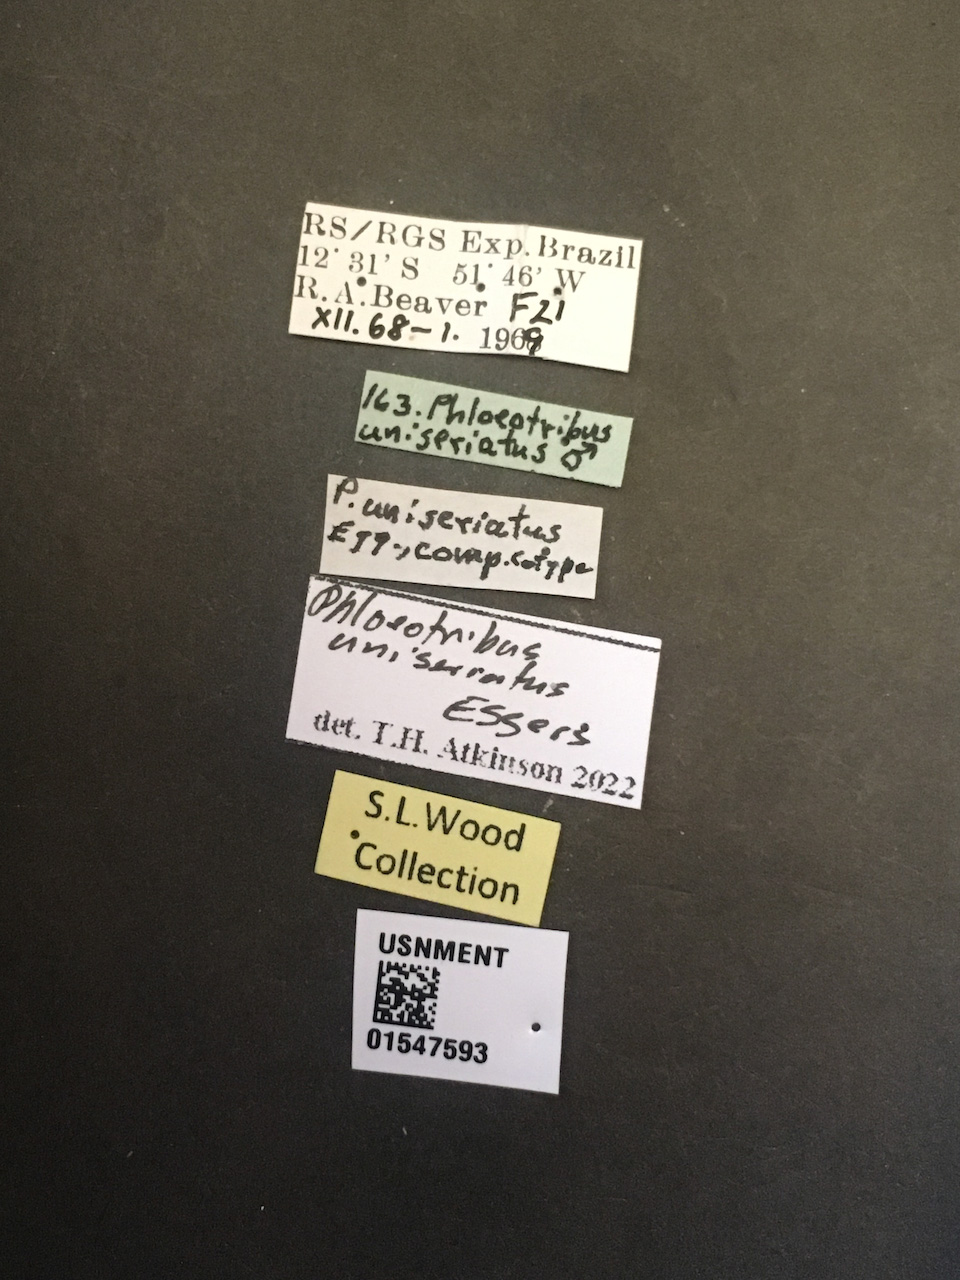 RS/RGS Exp. Brazil
12° 31' S 51° 46' W
R. A. Beaver F21
XII. 68-1. 1969
163. Phloeotribus
uniseriatus ♂
P. uniseriatus
Egg., comp. cotype
Phloeotribus
uniserratus
Eggers
det. T.H. Atkinson 2022
S.L.Wood
Collection
USNMENT
01547593